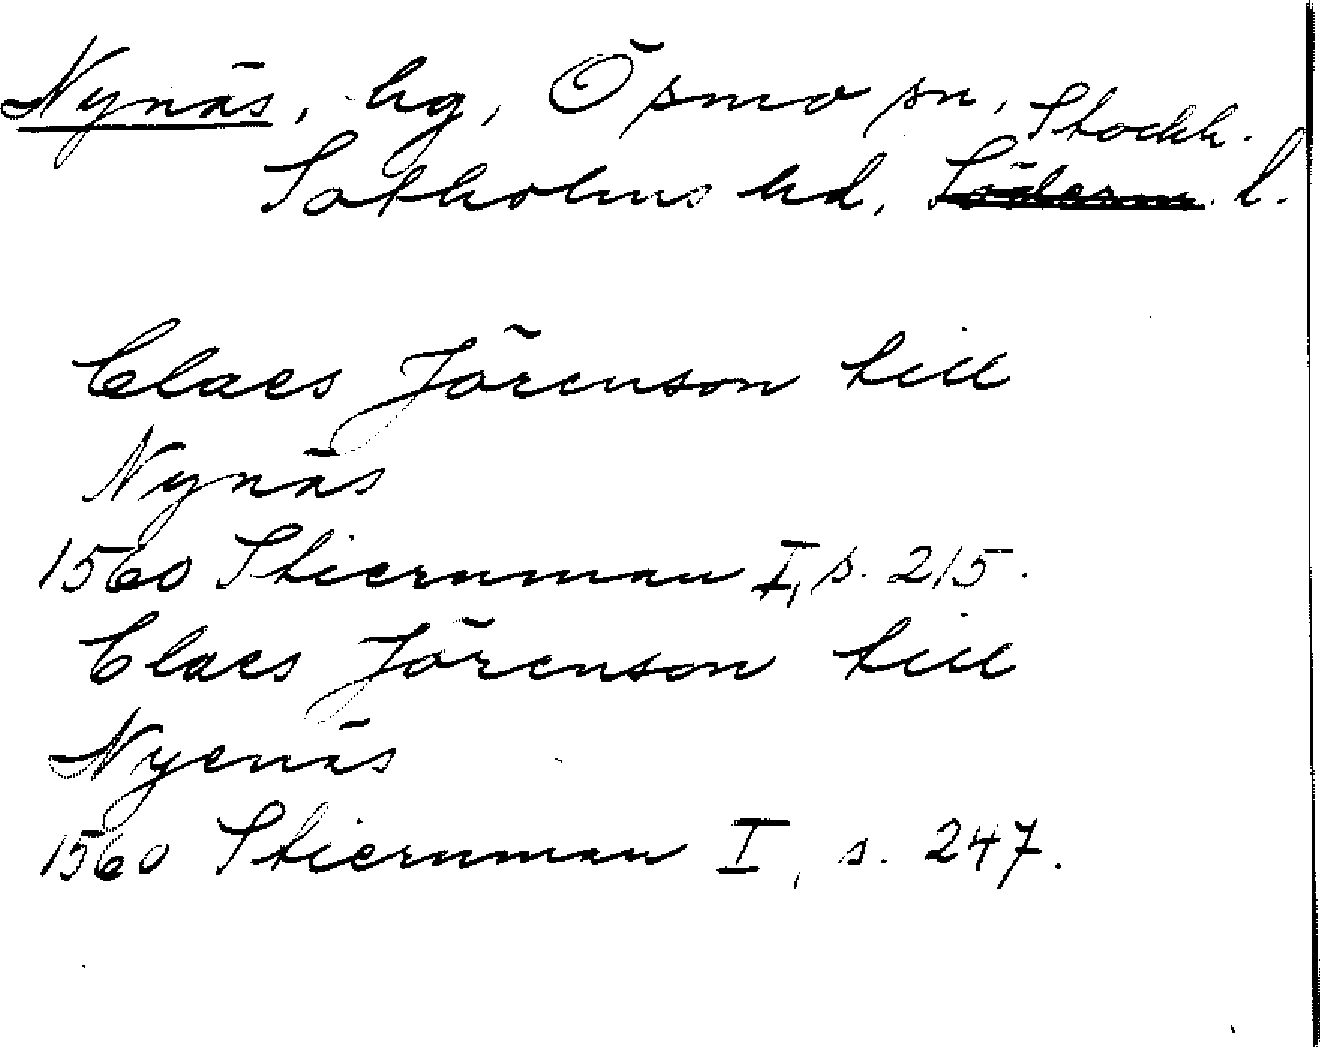 Nynäs, hg, Ösmo sn, Stockh.
Sotholms hd, Söderm. l.
Claes Jörenson till
Nynäs
1560 Stiernman I, s. 215.
Claes Jörenson till
Nyenäs
1560 Stiernman I, s. 247.